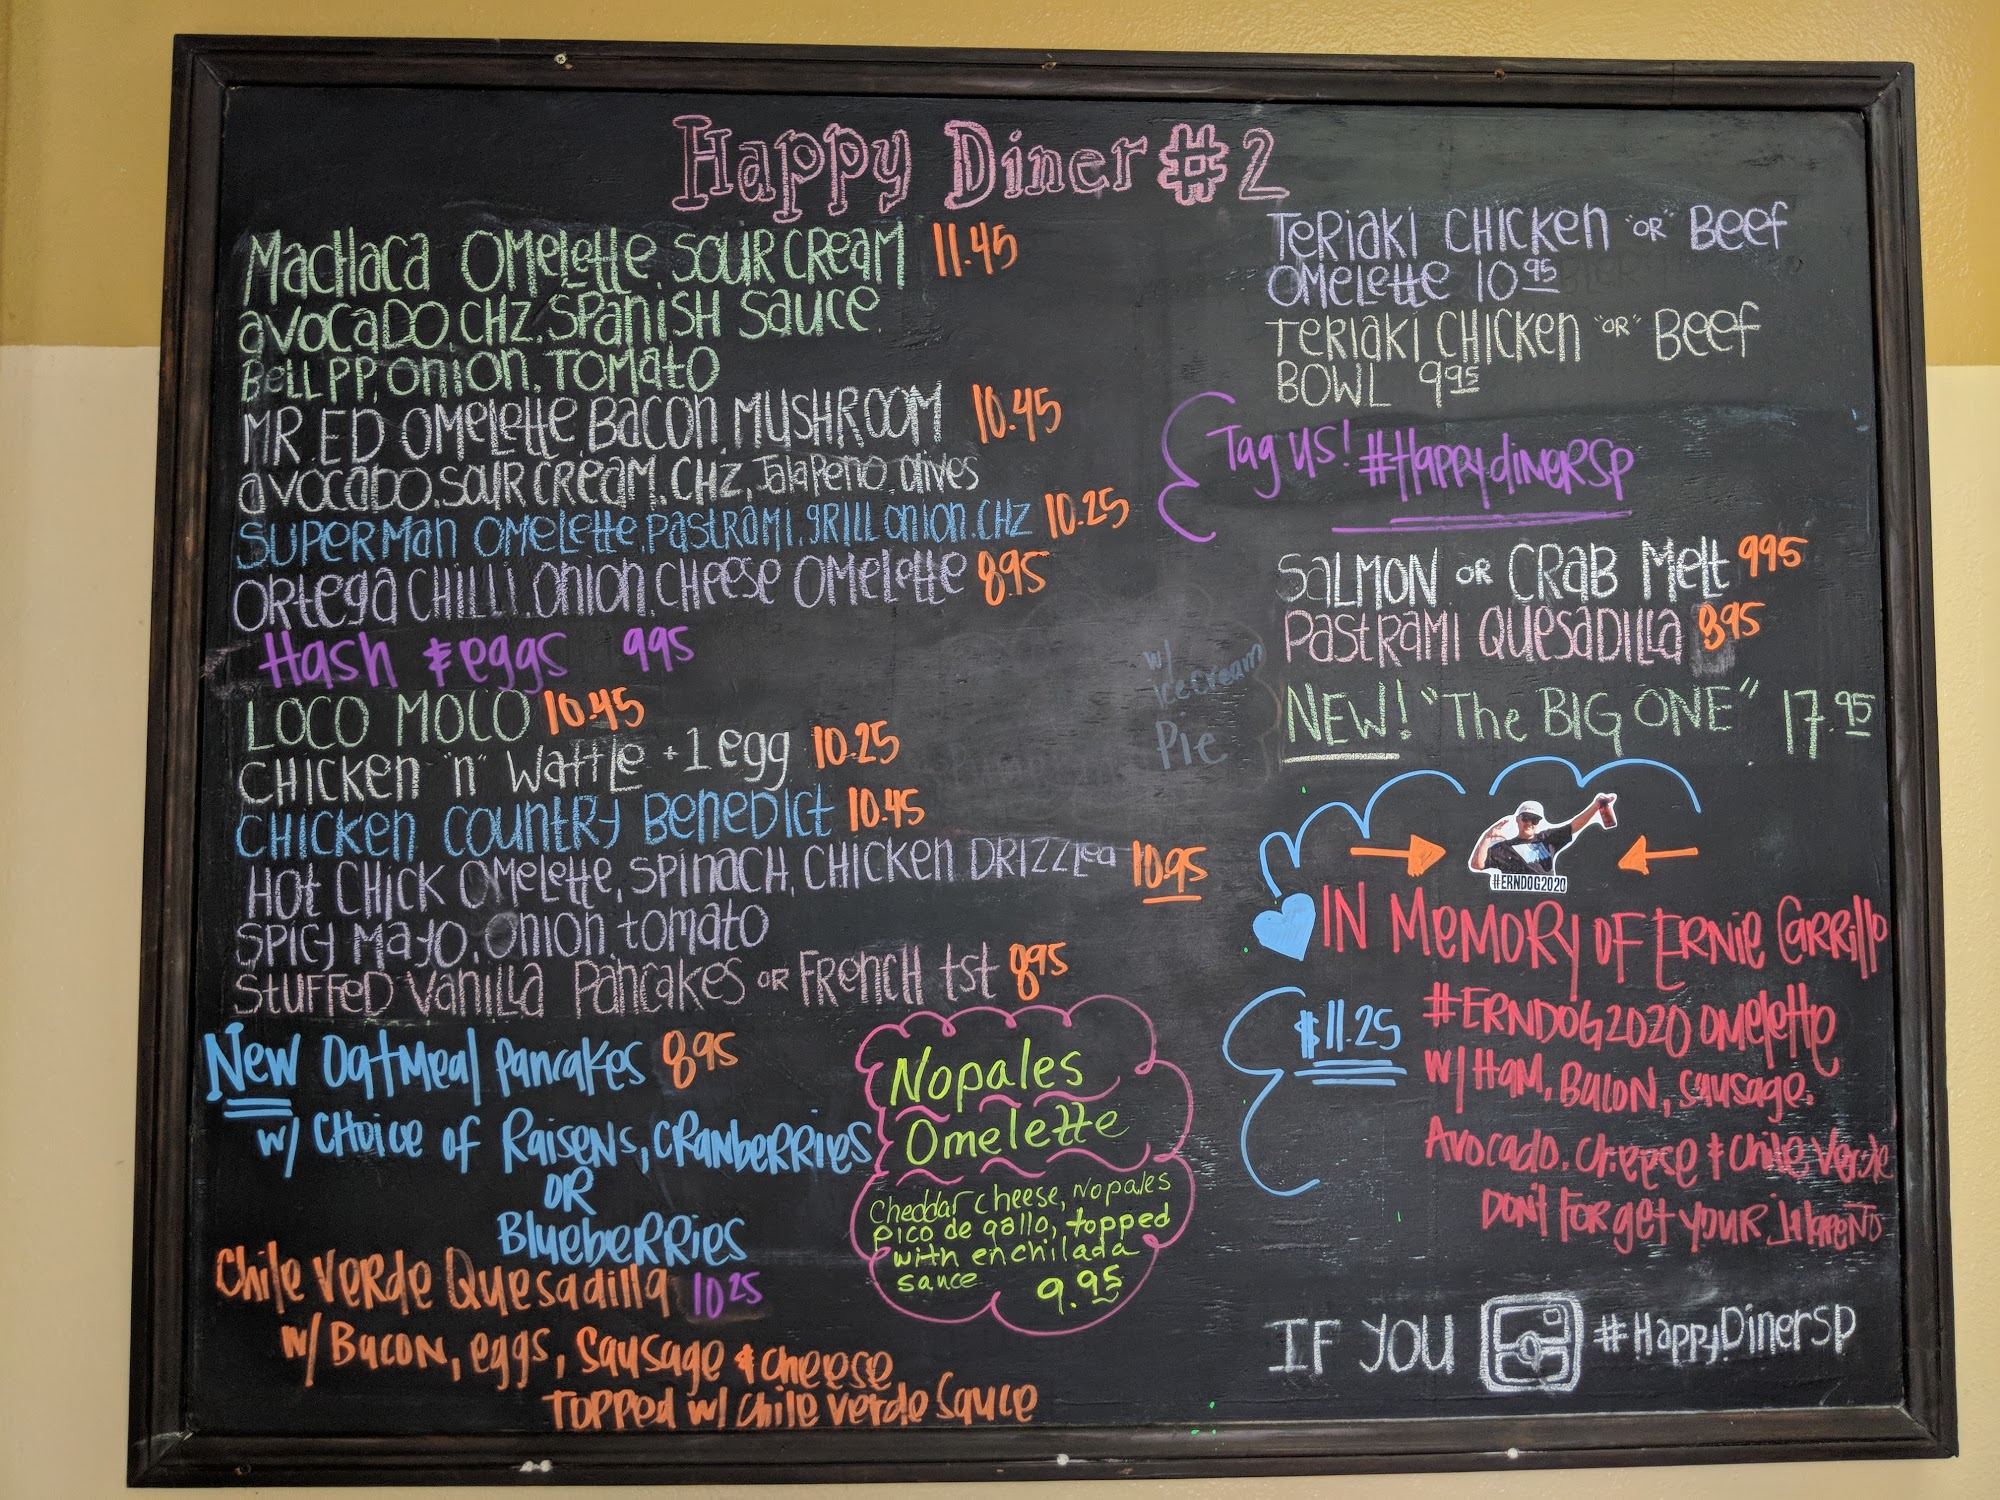 Happy Diner #2
Machaca Omelette, Sour Cream 11.45
avocado, chz, Spanish Sauce,
Bell pp, onion, Tomato
MR. ED Omelette, Bacon, Mushroom 10.45
avocado, sour cream, chz, Jalapeno, olives
Superman Omelette, Pastrami, grill onion, chz 10.25
Ortega Chilli, onion, cheese Omelette 8.95
Hash & eggs 995
Loco Moco 10.45
Chicken "n" Waffle +1 egg 10.25
Chicken Country Benedict 10.45
Hot Chick Omelette, Spinach, Chicken Drizzled 10.95
Spicy Mayo, onion, tomato
Stuffed Vanilla Pancakes or French tst 895
New Oatmeal Pancakes 895
w/ Choice of Raisens, Cranberries
OR
Blueberries
Chile Verde Quesadilla 1025
w/ Bacon, eggs, Sausage & cheese
Topped w/ Chile Verde Sauce
Nopales
Omelette
Cheddar cheese, Nopales
pico de gallo, topped
with enchilada
sauce 9.95
w/
Ice Cream
Pie
Teriaki Chicken "or" Beef
Omelette 10 95
Teriaki Chicken "or" Beef
Bowl 9 95
Tag us! #HappydinerSP
Salmon or Crab Melt 995
Pastrami Quesadilla 895
NEW! "The BIG ONE" 17.95
#ERNDOG2020
IN Memory of Ernie Carrillo
$11.25
#ERNDOG2020 omelette
w/ Ham, Bacon, sausage,
Avocado, Cheese & Chile Verde
Don't forget your Jalapeno
IF YOU #HappyDinerSP